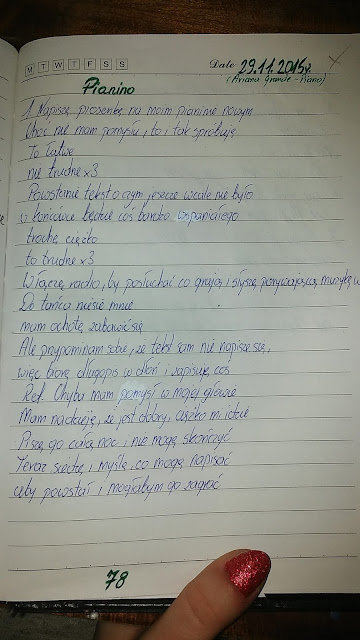 M T W T F S S
Date 29.11.2015r.
(Ariana Grande - Piano)
Pianino
1. Napiszę piosenkę na moim pianinie nowym
Choć nie mam pomysłu, to i tak spróbuję
To łatwe
nie trudne x3
Powstanie tekst o czym jeszcze wcale nie było
w końcówce będzie coś bardzo wspaniałego
trochę ciężko
to trudne x3
Włączę radio, by posłuchać co grają i słyszę porywającą muzykę
Do tańca niesie mnie
mam ochotę zabawić się
Ale przypominam sobie, że tekst sam nie napisze się,
więc biorę długopis w dłoń i zapisuję coś
Ref. Chyba mam pomysł w mojej głowie
Mam nadzieję, że jest dobry, ciężko mi idzie
Piszę go całą noc i nie mogę skończyć
Teraz siedzę i myślę, co mogę napisać
żeby powstał i mogłabym go zagrać
78